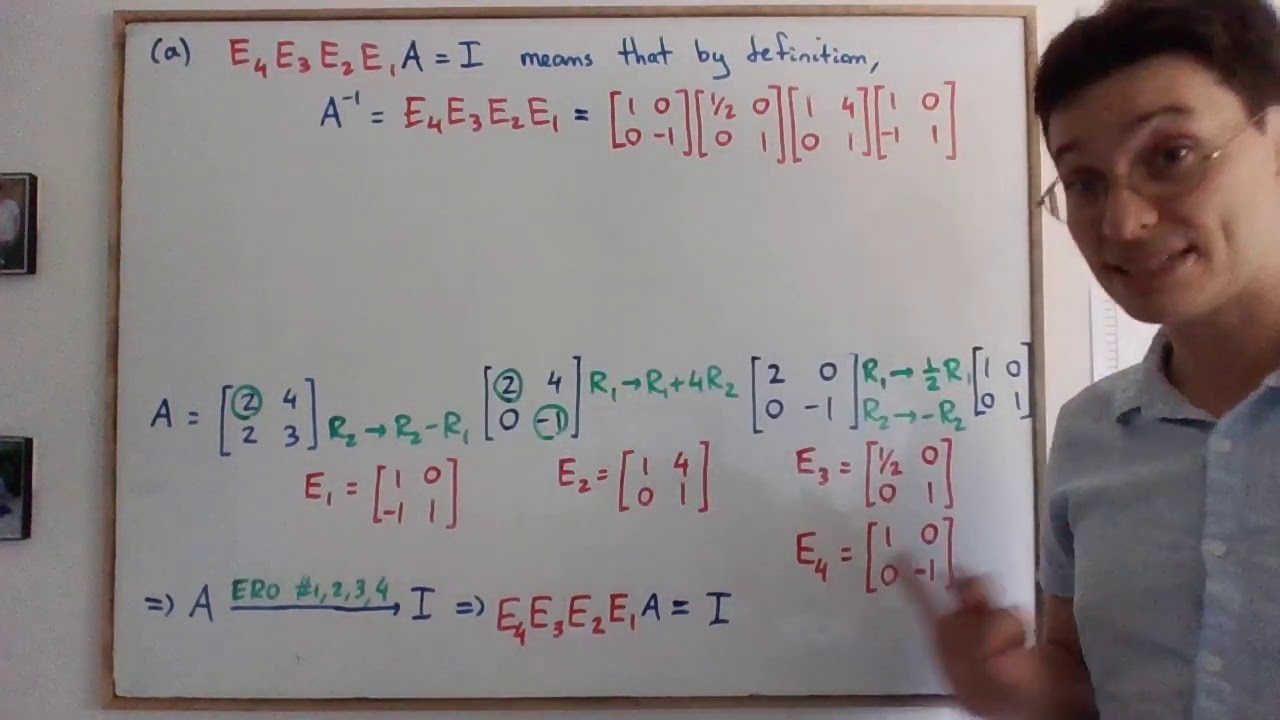 (a) E₄E₃E₂E₁A = I means that by definition,
A⁻¹ = E₄E₃E₂E₁ = [1 0; 0 -1] [1/2 0; 0 1] [1 4; 0 1] [1 0; -1 1]
A = [2 4; 2 3] R₂→R₂-R₁ [2 4; 0 -1] R₁→R₁+4R₂ [2 0; 0 -1] R₁→½R₁ R₂→-R₂ [1 0; 0 1]
E₁ = [1 0; -1 1] E₂ = [1 4; 0 1] E₃ = [1/2 0; 0 1]
E₄ = [1 0; 0 -1]
⇒ A ERO #1,2,3,4 → I ⇒ E₄E₃E₂E₁A = I